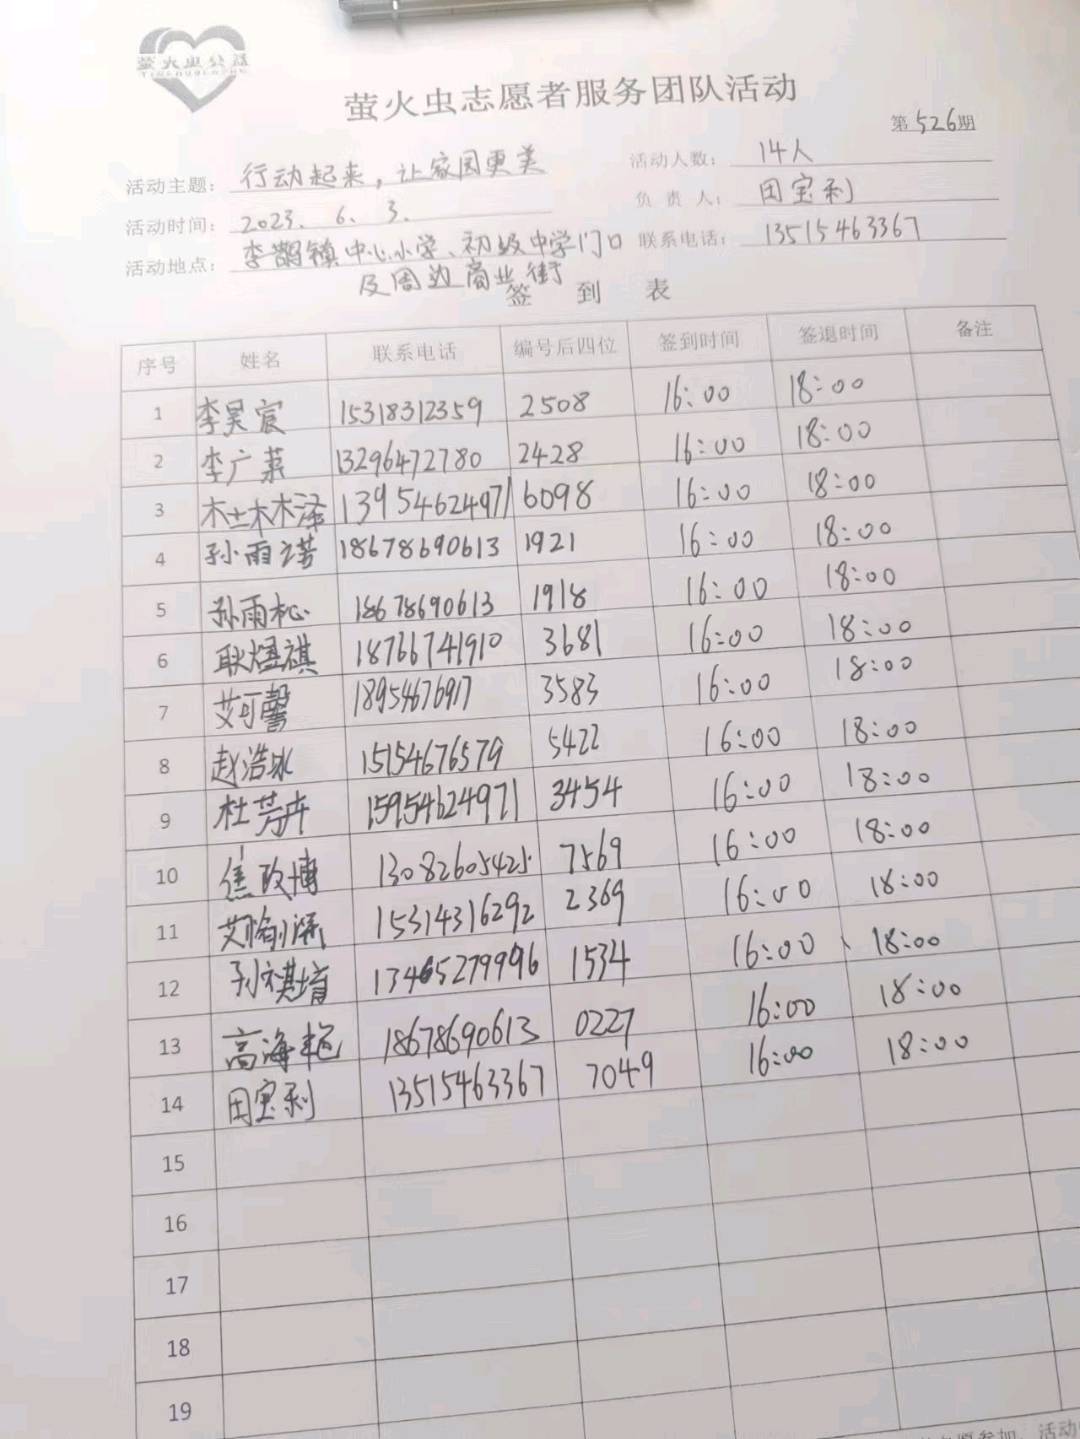 萤火虫公益
萤火虫志愿者服务团队活动
第526期
活动主题：行动起来，让家园更美 活动人数：14人
活动时间：2023.6.3. 负责人：田宝利
活动地点：李鹊镇中心小学、初级中学门口 联系电话：13515463367
及周边商业街
签到表
序号 姓名 联系电话 编号后四位 签到时间 签退时间 备注
1 李昊宸 15318312359 2508 16:00 18:00
2 李广菜 13296472780 2428 16:00 18:00
3 13954624971 6098 16:00 18:00
4 孙雨诺 18678690613 1921 16:00 18:00
5 孙雨松 18678690613 1918 16:00 18:00
6 耿煜祺 18766741910 3681 16:00 18:00
7 艾可馨 18954676917 3583 16:00 18:00
8 赵浩冰 15154676579 5422 16:00 18:00
9 杜芳卉 15954624971 3454 16:00 18:00
10 焦政博 13082605425 7569 16:00 18:00
11 艾愉涵 15314316292 2369 16:00 18:00
12 13465279996 1534 16:00 18:00
13 高海艳 18678690613 0227 16:00 18:00
14 田宝利 13515463367 7049 16:00 18:00
15
16
17
18
19